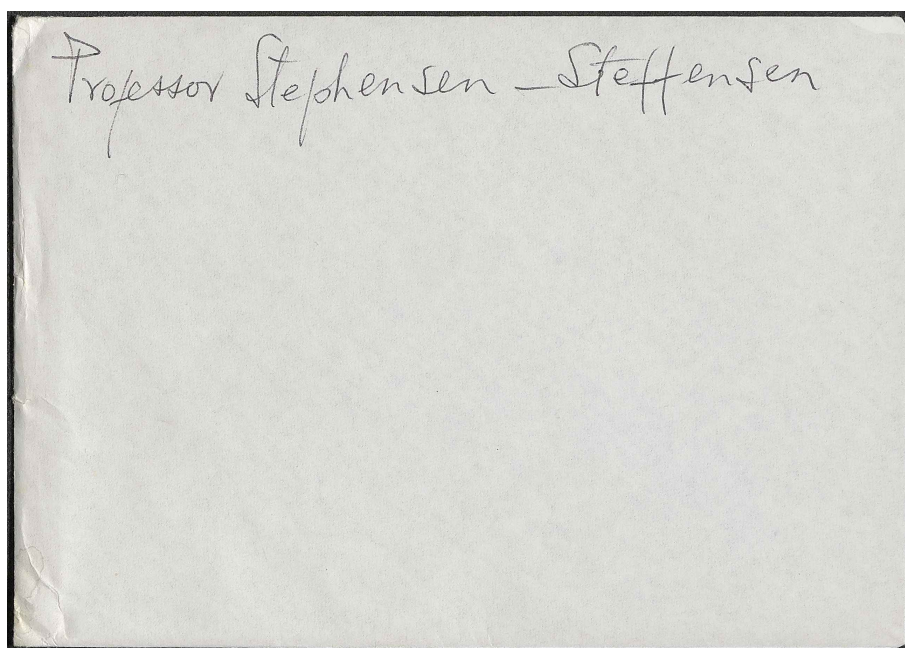 Professor Stephensen - Steffensen